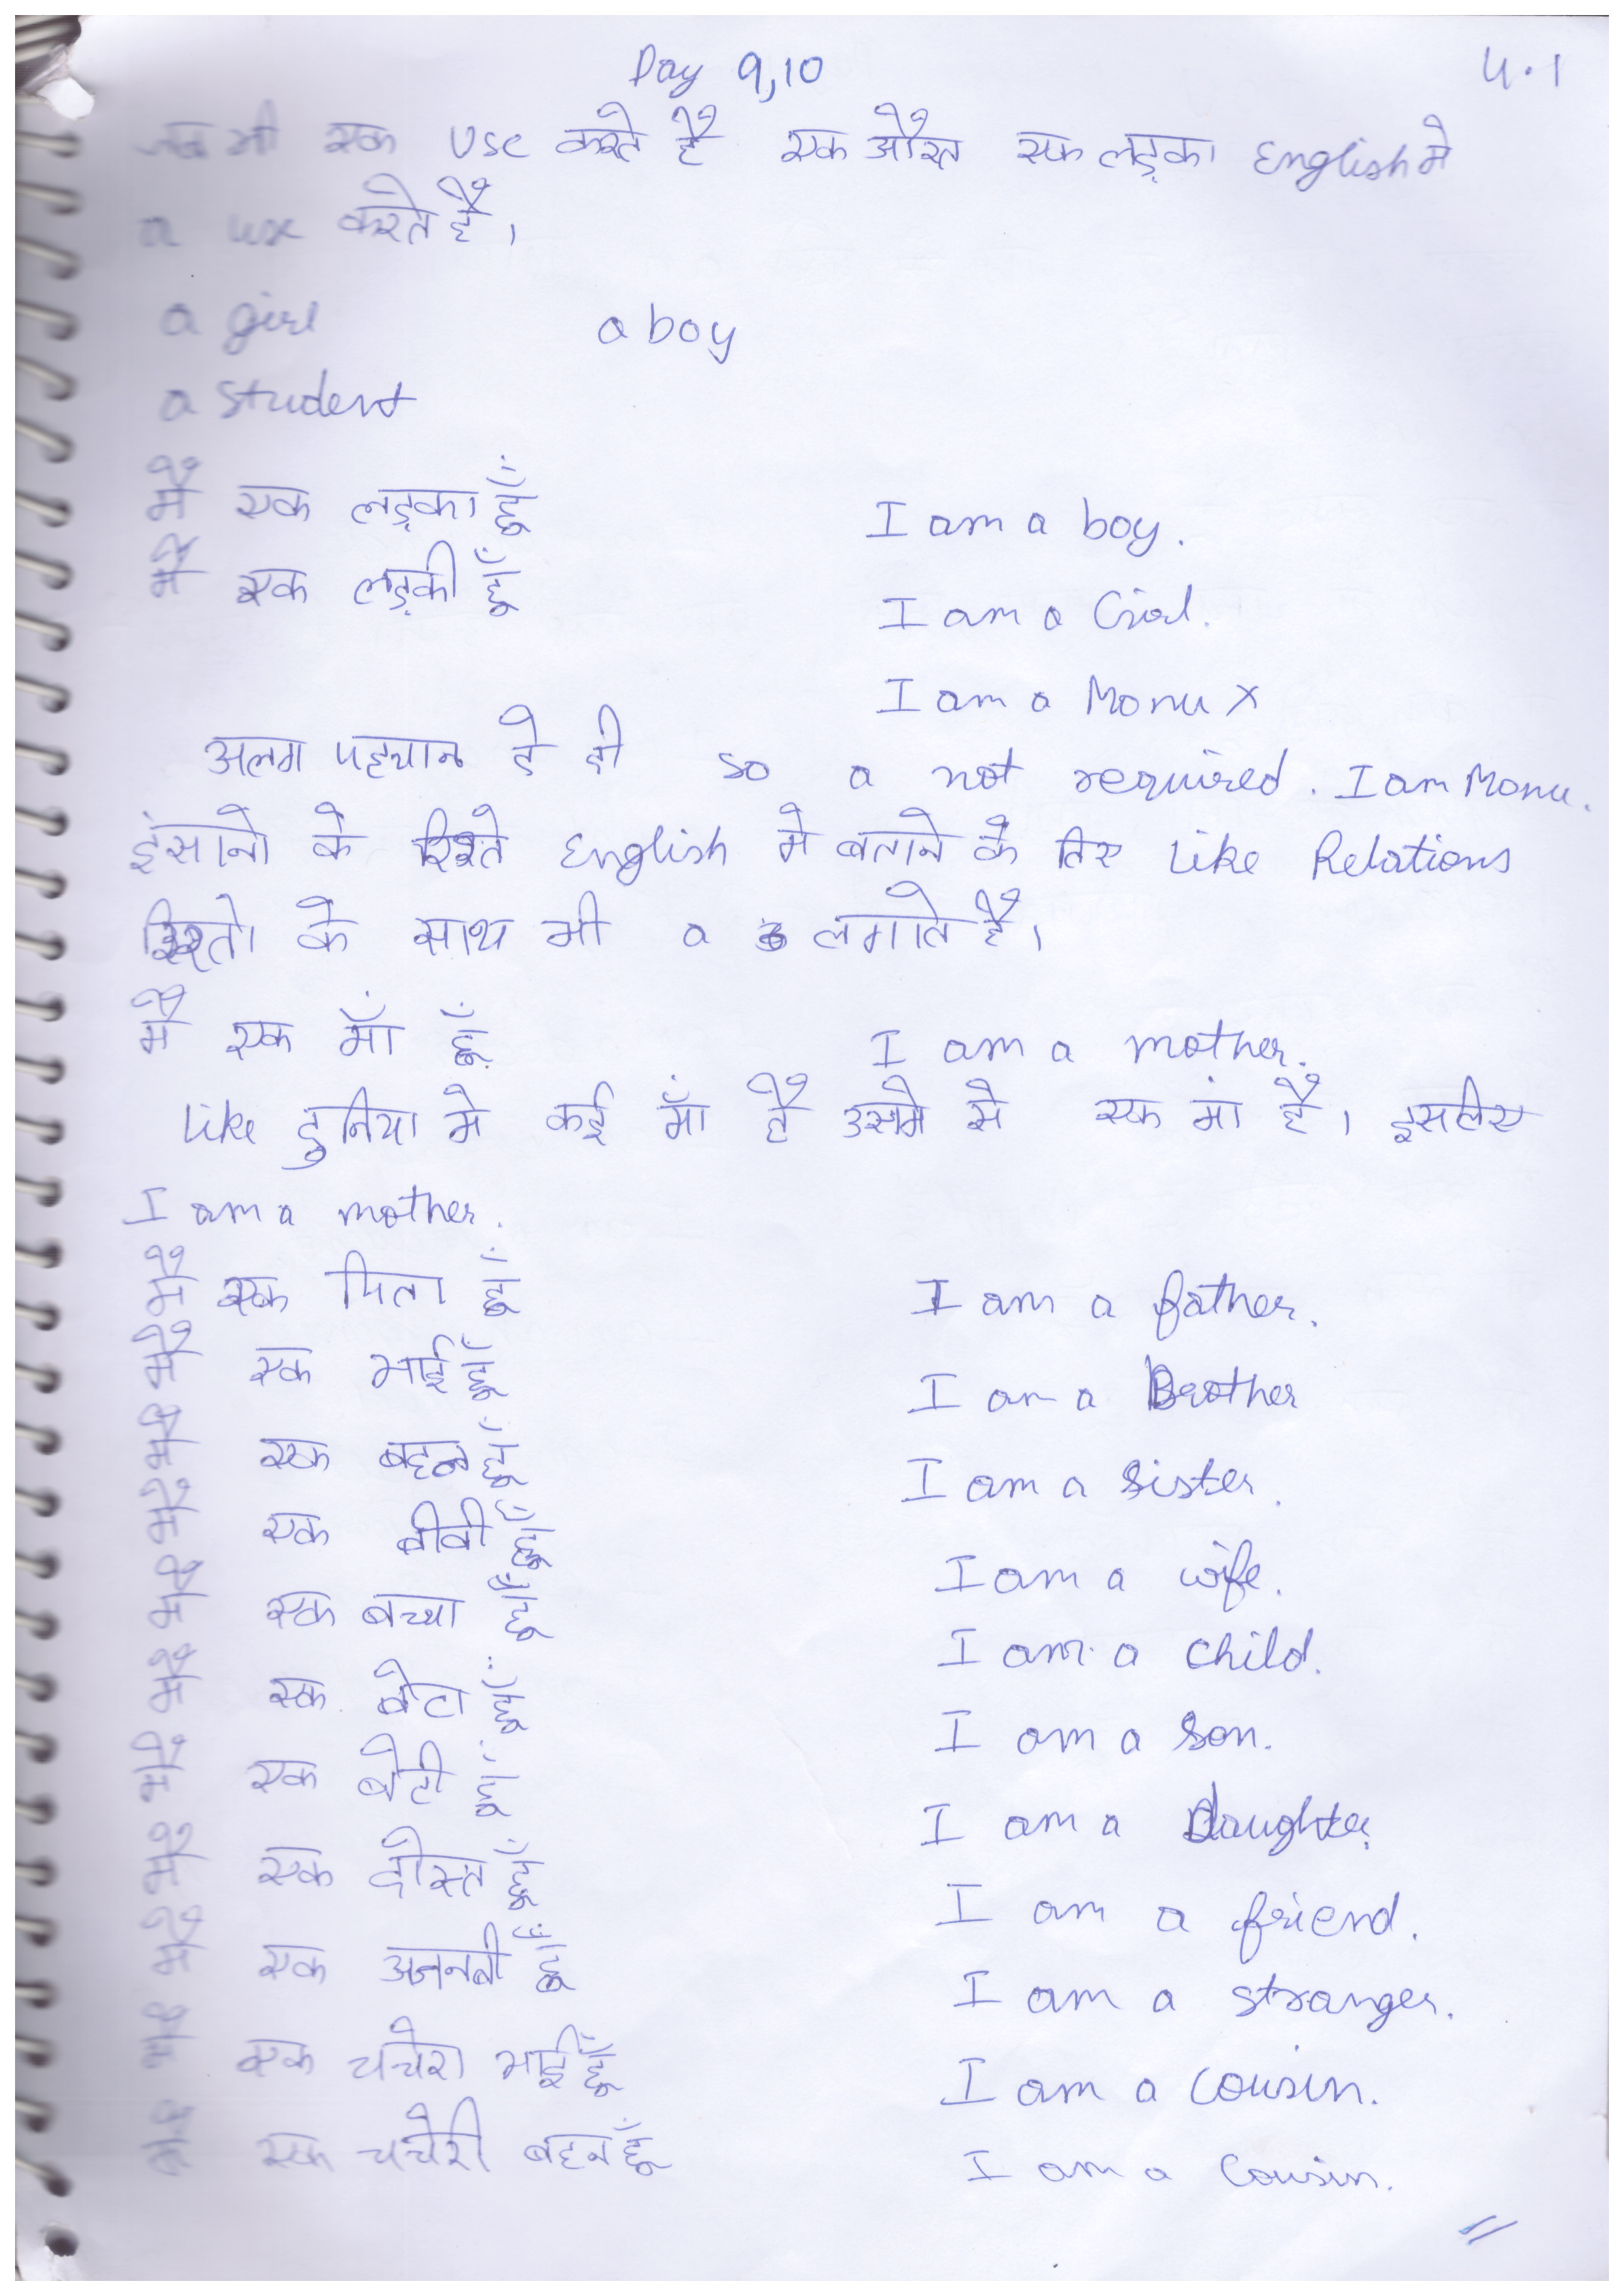 Day 9,10 4.1
जब भी एक use करते है एक औरत एक लड़का English मे
a use करते है।
a girl a boy
a student
मै एक लड़का हूँ I am a boy.
मै एक लड़की हूँ I am a Girl.
I am a Monu x
अलग पहचान दे दी so a not required. I am Monu.
इंसानो के रिश्ते English मे बताने के लिए like Relations
रिश्तो के साथ भी a लगाते है।
मै एक माँ हूँ I am a mother.
like दुनिया मे कई माँ है उसमे से एक मां है। इसलिए
I am a mother.
मै एक पिता हूँ I am a father.
मै एक भाई हूँ I am a Brother
मै एक बहन हूँ I am a sister.
मै एक बीवी हूँ I am a wife.
मै एक बच्चा हूँ I am a child.
मै एक बेटा हूँ I am a son.
मै एक बेटी हूँ I am a Daughter.
मै एक दोस्त हूँ I am a friend.
मै एक अजनबी हूँ I am a stranger.
मै एक चचेरा भाई हूँ I am a cousin.
मै एक चचेरी बहन हूँ I am a Cousin.